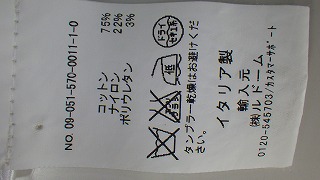 NO. 09-051-570-0011-1-0
コットン 75%
ナイロン 22%
ポリウレタン 3%
ドライ
セキユ系
低
タンブラー乾燥はお避けくだ
さい。
イタリア製
輸入元
(株)ルドーム
0120-545703/カスタマーサポート